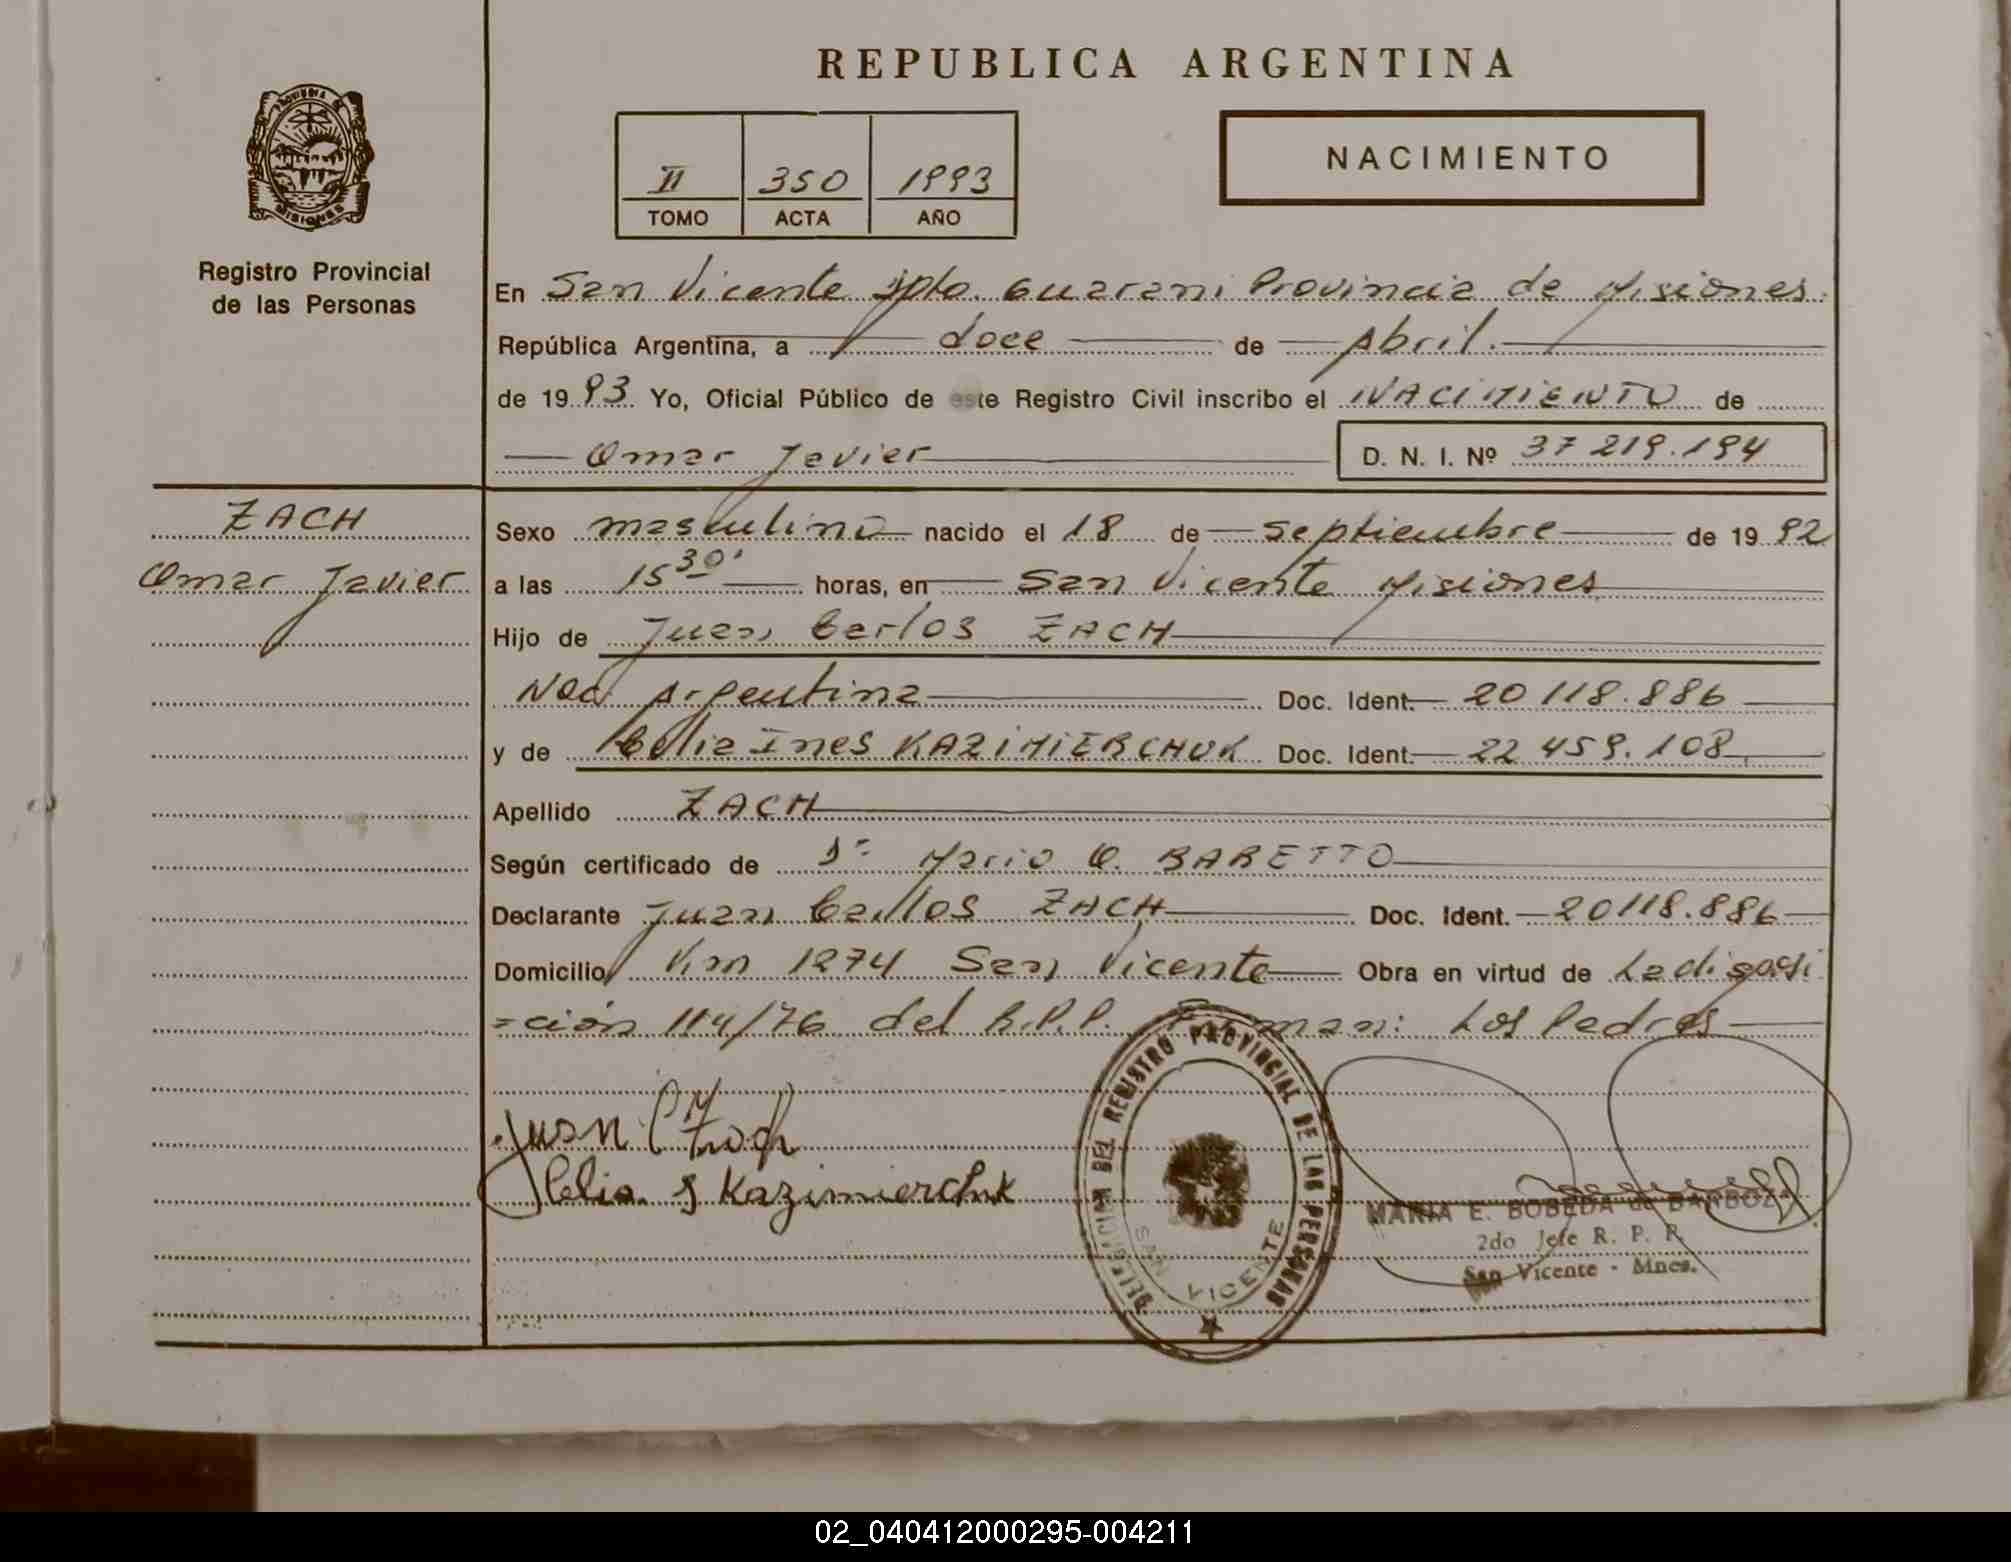 REPUBLICA ARGENTINA
PROVINCIA DE
MISIONES
Registro Provincial
de las Personas
II 350 1993
TOMO ACTA AÑO
NACIMIENTO
En San Vicente Dpto. Guarani Provincia de Misiones
República Argentina, a doce de Abril.
de 1993 Yo, Oficial Público de este Registro Civil inscribo el NACIMIENTO de
Omar Javier D. N. I. Nº 37 219.194
ZACH
Omar Javier
Sexo masculino nacido el 18 de septiembre de 1992
a las 15 30' horas, en San Vicente Misiones
Hijo de Juan Carlos ZACH
Nac. Argentina Doc. Ident. 20 118.886
y de Celia Ines KAZIMIERCHUK Doc. Ident. 22 459.108
Apellido ZACH
Según certificado de Dr. Mario O. BARETTO
Declarante Juan Carlos ZACH Doc. Ident. 20118.886
Domicilio Km 1274 San Vicente Obra en virtud de La disposi
=ción 114/76 del R.P.P. Firman: Los Padres
Juan C Zach
Celia I Kazimierchuk
DELEGACION DEL REGISTRO PROVINCIAL DE LAS PERSONAS
SAN VICENTE
MARIA E. BOBEDA de BARBOZA
2do Jefe R. P. P.
San Vicente - Mnes.
02_040412000295-004211